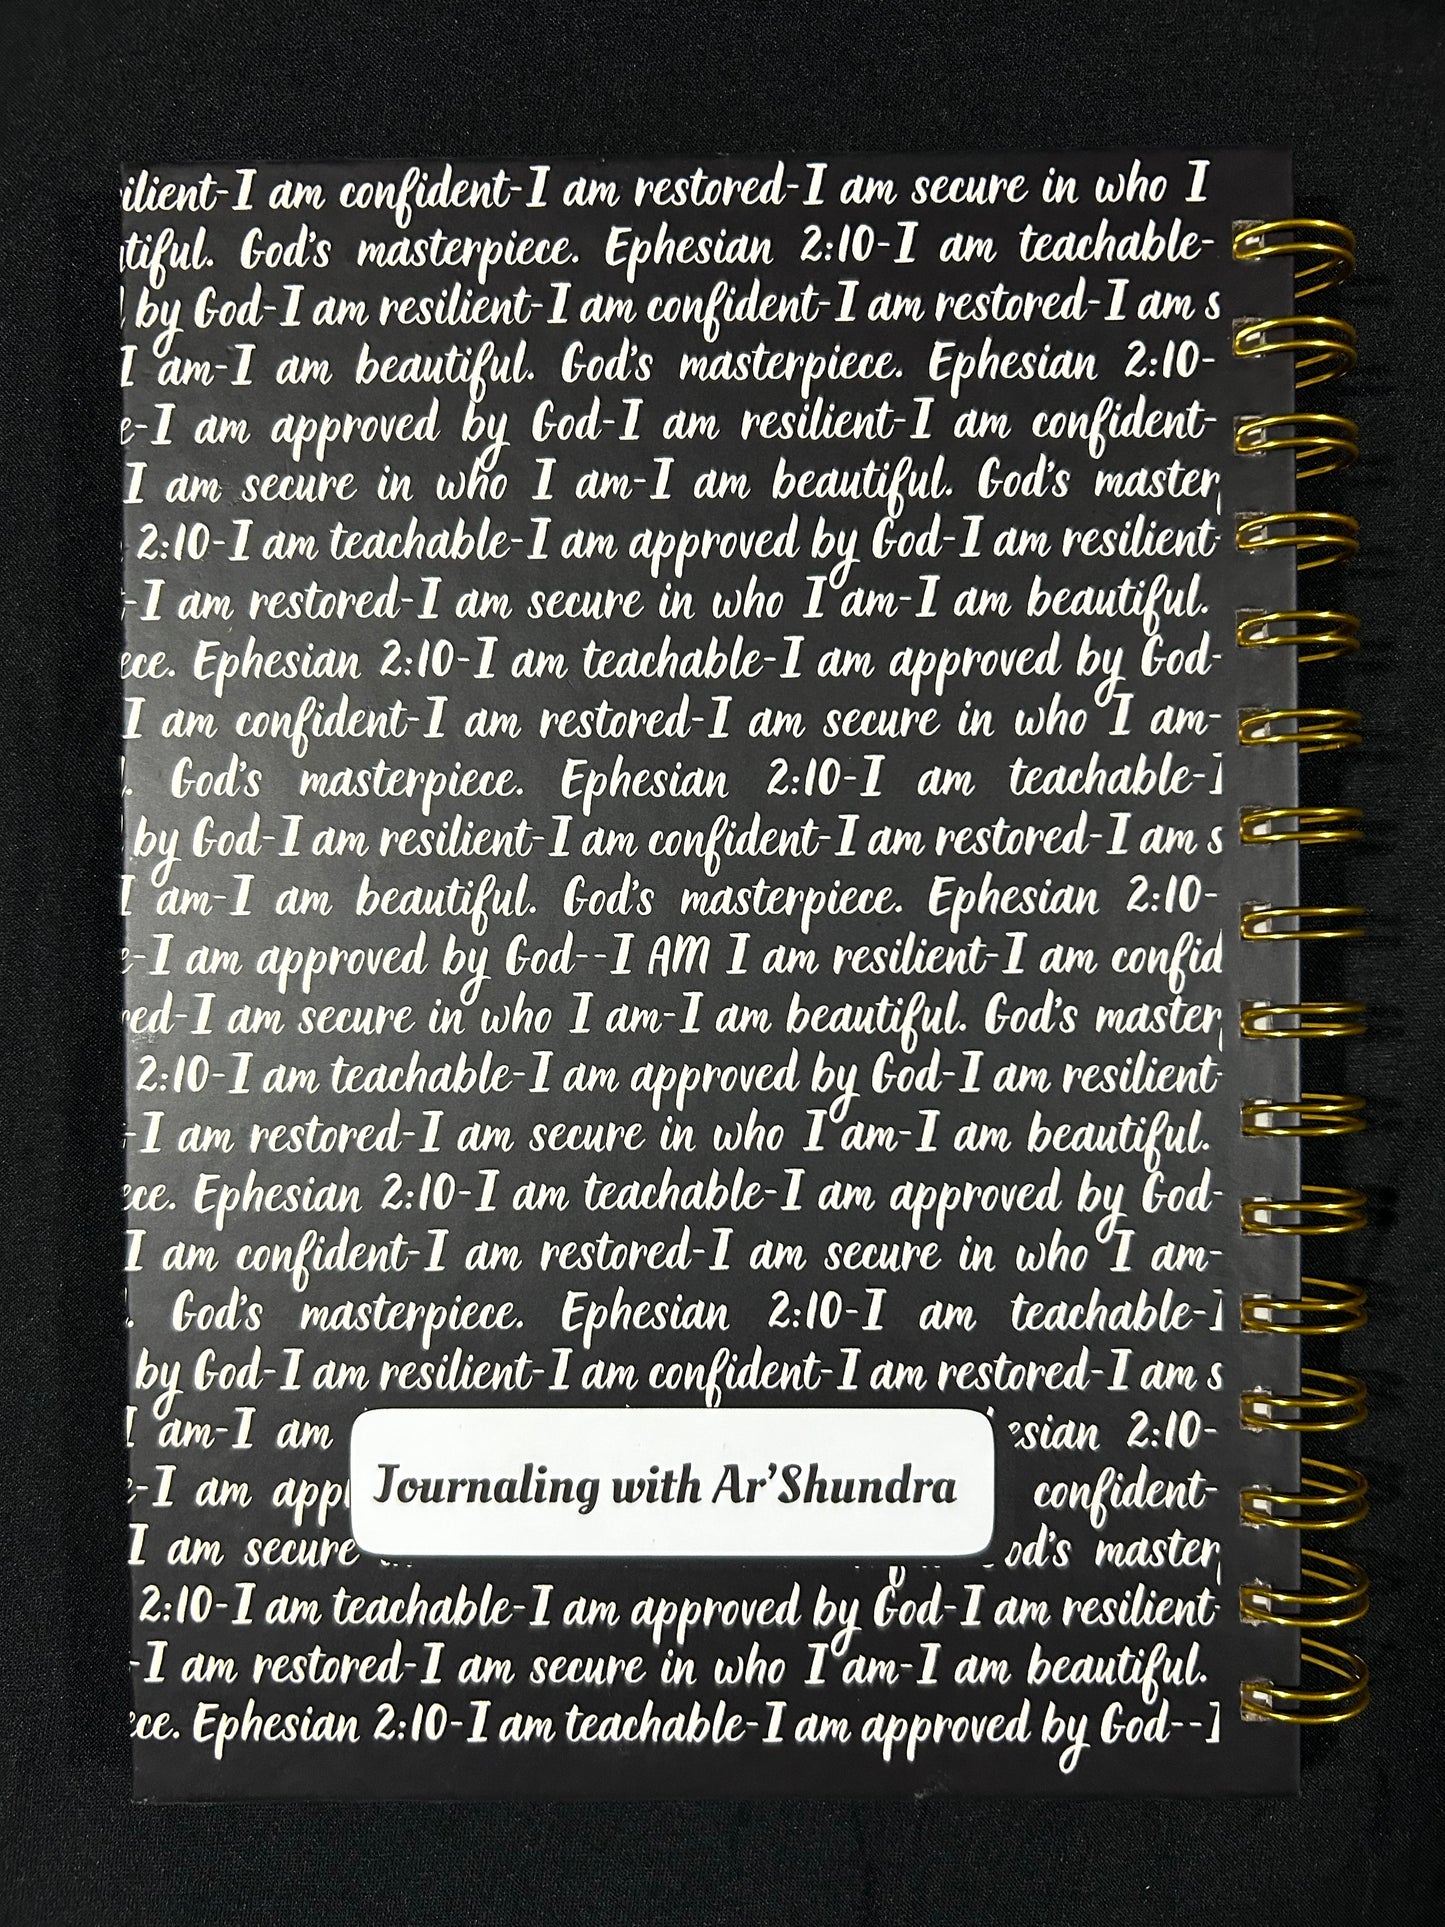 ilient-I am confident-I am restored-I am secure in who I
tiful. God's masterpiece. Ephesian 2:10-I am teachable-
by God-I am resilient-I am confident-I am restored-I am s
I am-I am beautiful. God's masterpiece. Ephesian 2:10-
e-I am approved by God-I am resilient-I am confident-
I am secure in who I am-I am beautiful. God's master
2:10-I am teachable-I am approved by God-I am resilient-
-I am restored-I am secure in who I am-I am beautiful.
ece. Ephesian 2:10-I am teachable-I am approved by God-
I am confident-I am restored-I am secure in who I am-
. God's masterpiece. Ephesian 2:10-I am teachable-I
by God-I am resilient-I am confident-I am restored-I am s
I am-I am beautiful. God's masterpiece. Ephesian 2:10-
e-I am approved by God--I AM I am resilient-I am confid
red-I am secure in who I am-I am beautiful. God's master
2:10-I am teachable-I am approved by God-I am resilient-
-I am restored-I am secure in who I am-I am beautiful.
ece. Ephesian 2:10-I am teachable-I am approved by God-
I am confident-I am restored-I am secure in who I am-
. God's masterpiece. Ephesian 2:10-I am teachable-I
by God-I am resilient-I am confident-I am restored-I am s
I am-I am esian 2:10-
-I am app confident-
Journaling with Ar'Shundra
I am secure od's master
2:10-I am teachable-I am approved by God-I am resilient-
-I am restored-I am secure in who I am-I am beautiful.
ece. Ephesian 2:10-I am teachable-I am approved by God--I